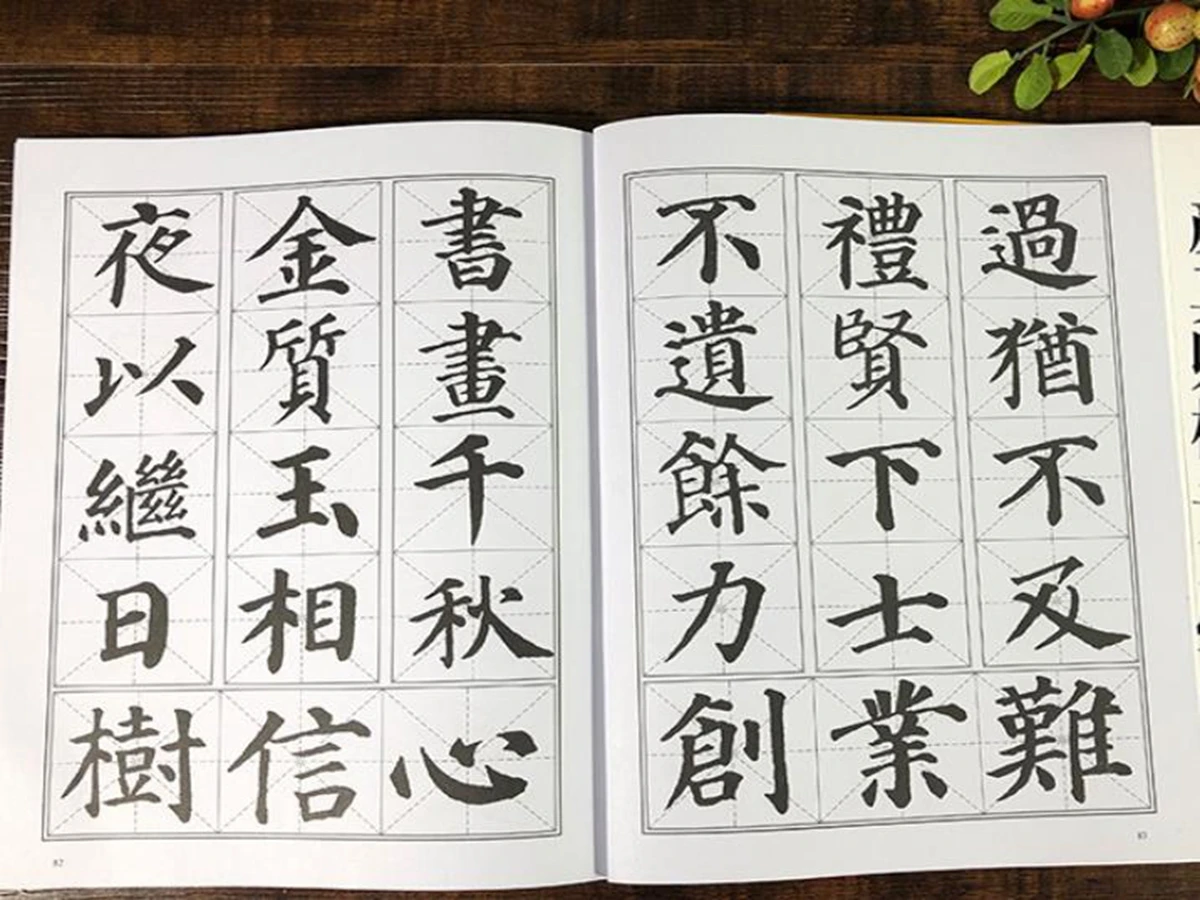 夜以繼日
金質玉相
書畫千秋
樹信心
82
不遺餘力
禮賢下士
過猶不及
創業難
83